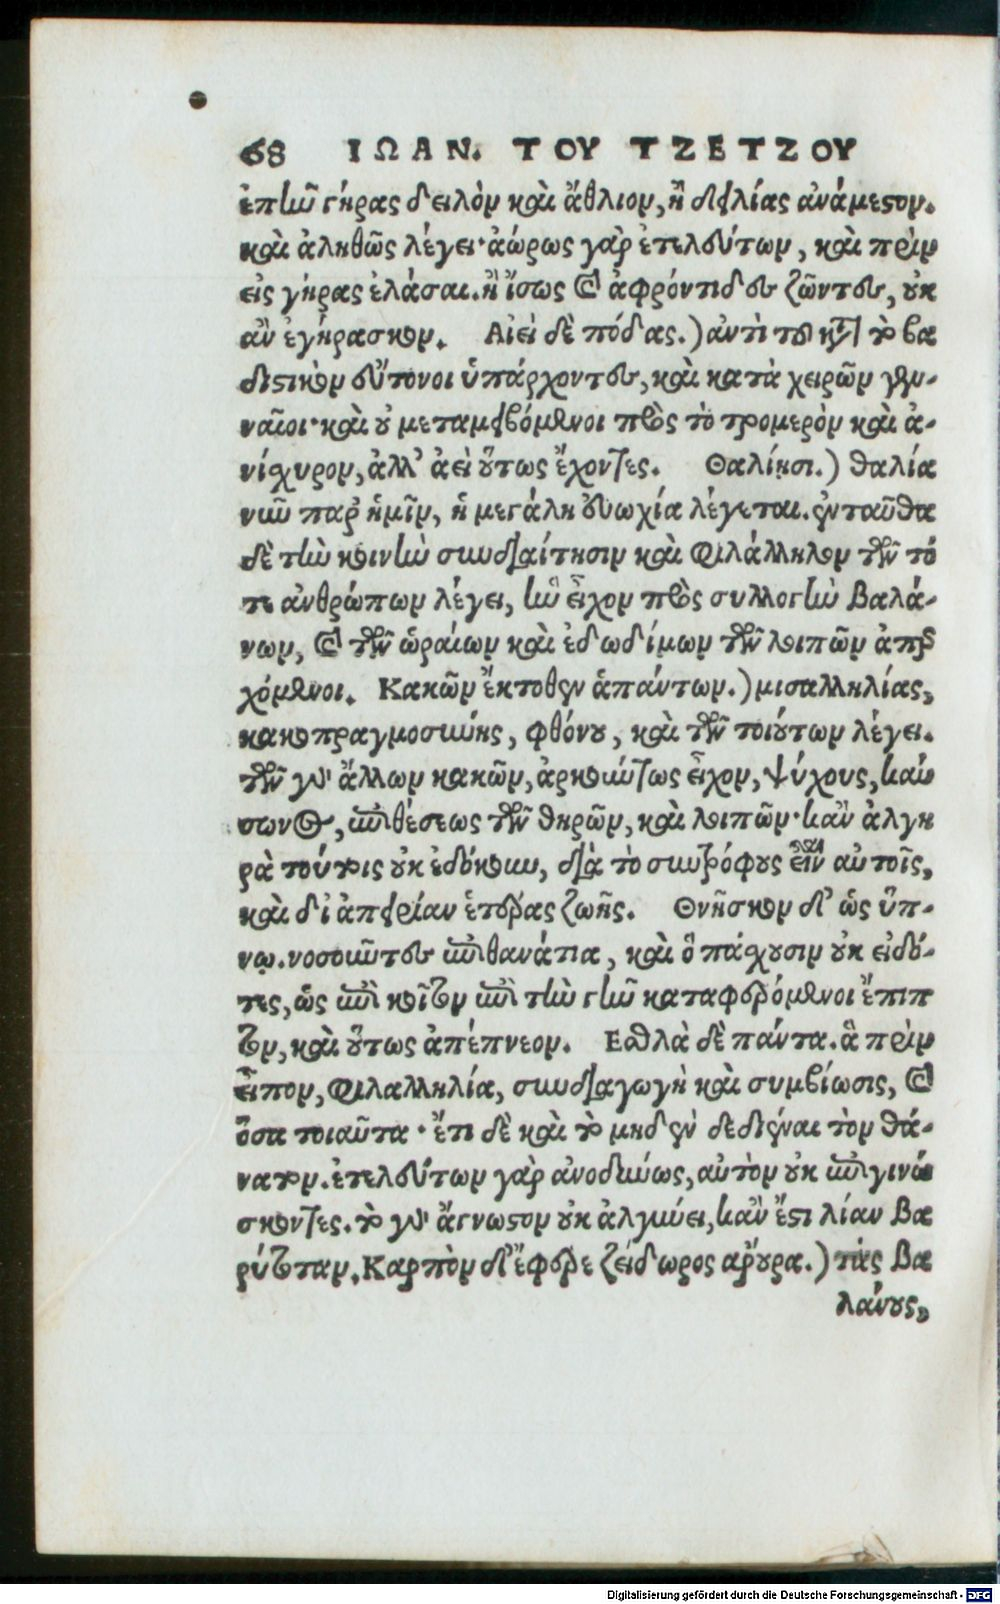 68 ΙΩΑΝ. ΤΟΥ ΤΖΕΤΖΟΥ
ἐπῆν γήρας δειλὸν καὶ ἄθλιον, ἢ δειλίας ἀνάμεστον.
καὶ ἀληθῶς λέγει· ἀώρως γὰρ ἐτελεύτων, καὶ πρὶν
εἰς γήρας ἐλάσαι. ἢ ἴσως καὶ ἀφρόντιδες ζῶντες, οὐκ
ἂν ἐγήρασκον. Αἰεὶ δὲ πόδας.) ἀντὶ τοῦ κατὰ τὸ βα
διστικὸν εὔτονοι ὑπάρχοντες, καὶ κατὰ χειρῶν γεν-
ναῖοι· καὶ οὐ μεταμειβόμενοι πρὸς τὸ τρομερὸν καὶ ἀ-
νίσχυρον, ἀλλ' ἀεὶ οὕτως ἔχοντες. Θαλίῃσι.) θαλία
νῦν παρ' ἡμῖν, ἡ μεγάλη εὐωχία λέγεται. ἐνταῦθα
δὲ τὴν κοινὴν συνδιαίτησιν καὶ φιλάλληλον τῶν τό
τε ἀνθρώπων λέγει, ἣν εἶχον πρὸς συλλογὴν βαλά-
νων, καὶ τῶν ὡραίων καὶ ἐδωδίμων τῶν λοιπῶν ἀπερ
χόμενοι. Κακῶν ἔκτοθεν ἁπάντων.) μισαλληλίας,
κακοπραγμοσύνης, φθόνου, καὶ τῶν τοιούτων λέγει.
τῶν γὰρ ἄλλων κακῶν, ἀρκούντως εἶχον, ψύχους, καύ
σωνος, ἐπιθέσεως τῶν θηρῶν, καὶ λοιπῶν· κἂν ἀλγη
ρὰ τούτοις οὐκ ἐδόκουν, διὰ τὸ συντρόφους εἶναι αὐτοῖς,
καὶ δι' ἀπειρίαν ἑτέρας ζωῆς. Θνῆσκον δ' ὡς ὕπ-
νῳ. νοσοῦντες ἐπιθανάτια, καὶ ὃ πάσχουσιν οὐκ εἰδό-
τες, ὡς ἐπὶ κοίτην ἐπὶ τὴν γῆν καταφερόμενοι ἔπιπ
τον, καὶ οὕτως ἀπέπνεον. Εσθλὰ δὲ πάντα. ἃ πρὶν
εἶπον, φιλαλληλία, συνδιαγωγὴ καὶ συμβίωσις, καὶ
ὅσα τοιαῦτα· ἔτι δὲ καὶ τὸ μηδὲν δεδιέναι τὸν θά-
νατον. ἐτελεύτων γὰρ ἀνοδύνως, αὐτὸν οὐκ ἐπιγινώ
σκοντες. τὸ γὰρ ἄγνωστον οὐκ ἀλγύνει, κἂν ἔστι λίαν βα
ρύτατον. Καρπὸν δ' ἔφερε ζείδωρος ἄρουρα.) τὰς βα
λάνους,
Digitalisierung gefördert durch die Deutsche Forschungsgemeinschaft - DFG